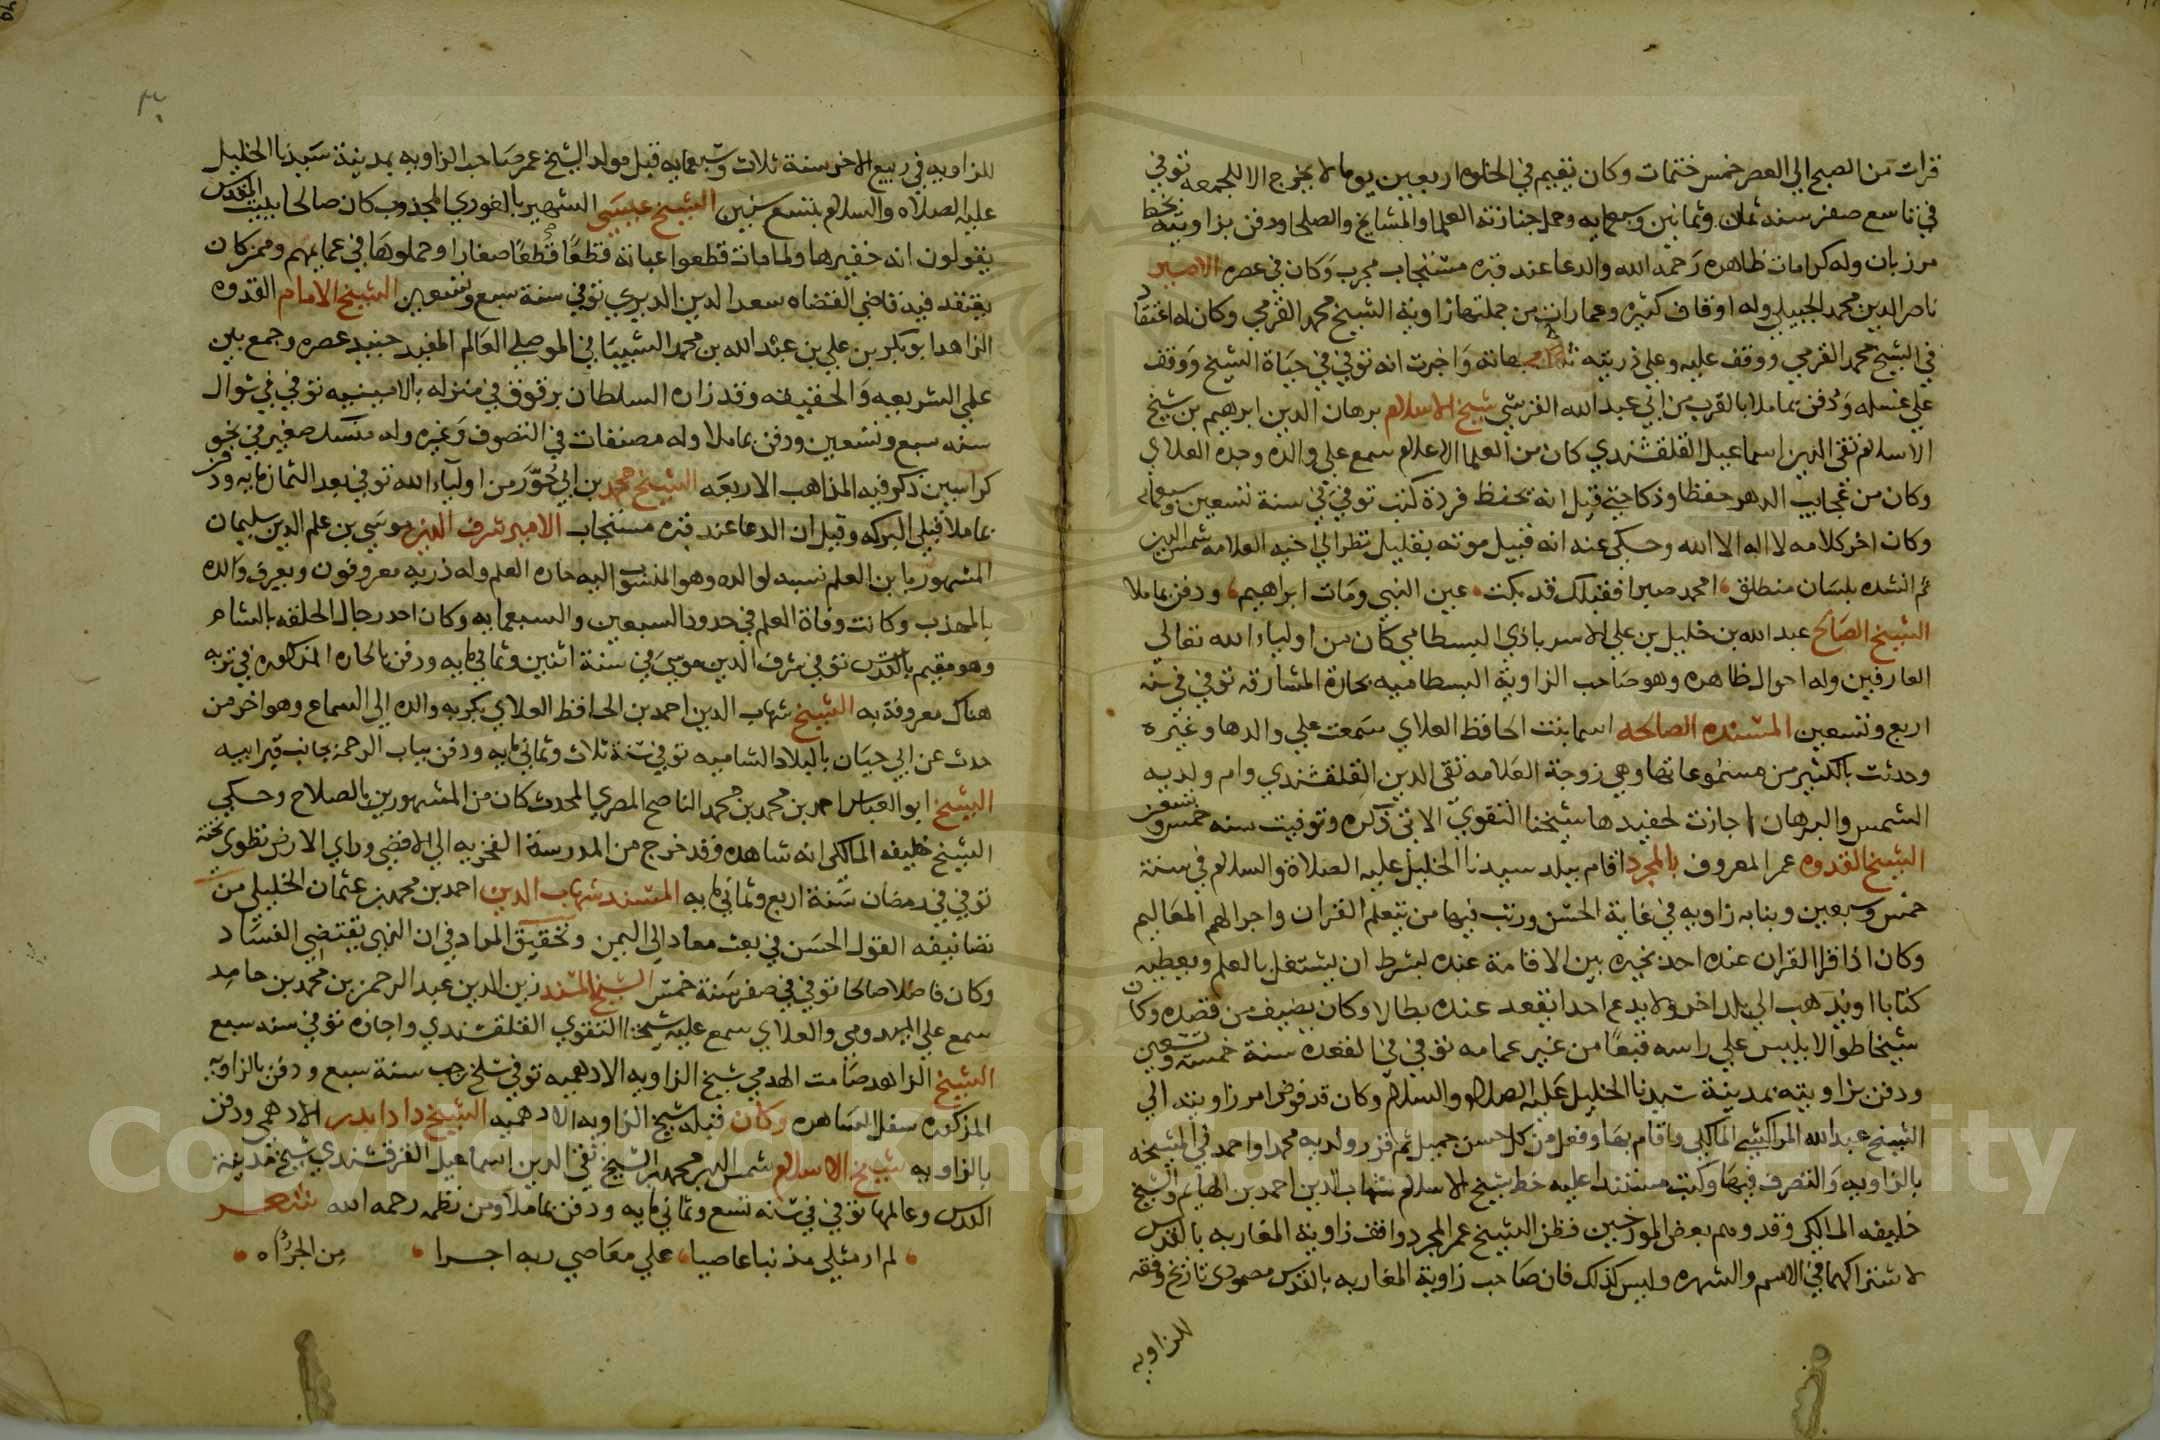 قرات من الصبح الى العصر خمس ختمات وكان يقيم في الخلوه اربعين يوما لا يخرج الا للجمعه توفي
في تاسع صفر سنه ثمان وثمانين وسبعمايه وحمل جنازته العلما والمشايخ والصلحا ودفن بزاويته بخط
مرزبان وله كرامات ظاهره رحمه الله والدعا عند قبره مستجاب مجرب وكان في عصره الامير
ناصر الدين محمد الجبيلي وله اوقاف كثيره وعمارات من جملتها زاوية الشيخ محمد القرمي وكان له اعتقاد
في الشيخ محمد القرمي ووقف عليه وعلي ذريته واخبرت انه توفي في حياة الشيخ ووقف
علي غسله ودفن بماملا بالقرب من ابي عبد الله القرشي شيخ الاسلام برهان الدين ابرهيم بن شيخ
الاسلام تقى الدين اسماعيل القلقشندي كان من العلما الاعلام سمع علي والده وجده العلاي
وكان من عجايب الدهر حفظا وذكا حتي قيل انه يحفظ فردة كتب توفي في سنة تسعين وسبعمايه
وكان اخر كلامه لا اله الا الله وحكي عنه انه قبيل موته بقليل نظر الي اخيه العلامه شمس الدين
ثم انشده بلسان منطلق امحمد صبرا فقبلك قد بكت عين النبي ومات ابراهيم ودفن بماملا
الشيخ الصالح عبد الله بن خليل بن علي الاسرباذي البسطامي كان من اولياء الله تعالي
العارفين وله احوال ظاهره وهو صاحب الزاوية البسطاميه بحارة المشارقه توفي في سنه
اربع وتسعين المسنده الصالحه اسما بنت الحافظ العلاي سمعت علي والدها وغيره
وحدثت بالكثير من مسموعاتها وهي زوجة العلامه تقى الدين القلقشندي وام ولديه
الشمس والبرهان اجازت لحفيدها شيخنا التقوي الاتي ذكره وتوفيت سنه خمس وتسعين
الشيخ القدوه عمر المعروف بالمجرد اقام ببلد سيدنا الخليل عليه الصلاة والسلام في سنة
خمس وسبعين وبنا به زاويه في غاية الحسن ورتب فيها من يتعلم القران واجرا لهم المعاليم
وكان اذا قرا القران عنده احد يخيره بين الاقامة عنده بشرط ان يشتغل بالعلم ويعطيه
كتابا او يذهب الي بلد اخر ولا يدع احدا يقعد عنده بطالا وكان يضيف من قصده وكان
شيخا طوالا يلبس علي راسه قبعا من غير عمامه توفي في القعده سنة خمسه وتسعين
ودفن بزاويته بمدينة سيدنا الخليل عليه الصلاه والسلام وكان قد فوض امر زاويته الي
الشيخ عبد الله المراكشي المالكي واقام بها وفعل من كل حسن جميل ثم قرر ولديه محمدا واحمد في المشيخه
بالزاويه والتصرف فيها وكتب مستندا عليه خط شيخ الاسلام شهاب الدين احمد بن الهايم والشيخ
خليفه المالكي وقد وهم بعض المورخين فظن الشيخ عمر المجرد واقف زاوية المغاربه بالقدس
لاشتراكهما في الاسم والشهره وليس كذلك فان صاحب زاوية المغاربه بالقدس مصمودي تاريخ وقفه
للزاويه
للزاويه في ربيع الاخر سنة ثلاث وسبعمايه قبل مولد الشيخ عمر صاحب الزاويه بمدينة سيدنا الخليل
عليه الصلاه والسلام بتسع سنين الشيخ عيسى الشهير بالغوري المجذوب كان صالحا ببيت المقدس
يقولون انه خفيرها ولما مات قطعوا عباته قطعا قطعا صغارا وحملوها في عمايمهم وممن كان
يعتقد فيه قاضي القضاه سعد الدين الديري توفي سنة سبع وتسعين الشيخ الامام القدوه
الزاهد ابو بكر بن علي بن عبد الله بن محمد الشيباني الموصلي العالم المفيد جنيد عصره وجمع بين
علمي الشريعه والحقيقه وقد زاره السلطان برقوق في منزله بالامينيه توفي في شوال
سنه سبع وتسعين ودفن بماملا وله مصنفات في التصوف وغيره وله منسك صغير في نحو
كراسين ذكر فيه المذاهب الاربعه الشيخ محمد بن ابي حور من اولياء الله توفي بعد الثمانمايه ودفن
بماملا قبلي البركه وقيل ان الدعا عند قبره مستجاب الامير شرف الدين موسي بن علم الدين سليمان
المشهور بابن العلم نسبه لوالده وهو المنسوب اليه حارة العلم وله ذريه معروفون ويعرف والده
بالمهذب وكانت وفاة العلم في حدود السبعين والسبعمايه وكان احد رجال الحلقه بالشام
وهو مقيم بالقدس توفي شرف الدين موسي في سنة اثنين وثمانمايه ودفن بالحاره المذكوره في تربه
هناك معروفة به الشيخ شهاب الدين احمد بن الحافظ العلاي بكر به والده الى السماع وهو اخر من
حدث عن ابي حيان بالبلاد الشاميه توفي سنة ثلاث وثمانمايه ودفن بباب الرحمه بجانب قبر ابيه
الشيخ ابو العباس احمد بن محمد بن محمد الناصح المصري المحدث كان من المشهورين بالصلاح وحكي
الشيخ خليفه المالكي انه شاهده وقد خرج من المدرسة الفخريه الي الاقصي وراي الارض تطوي تحته
توفي في رمضان سنة اربع وثمانمايه المسند شهاب الدين احمد بن محمد بن عثمان الخليلي من
تصانيفه القول الحسن في بعث معاد الي اليمن وتحقيق المراد في ان النهي يقتضي الفساد
وكان فاضلا صالحا توفي في صفر سنة خمس الشيخ المسند زين الدين عبد الرحمن بن محمد بن حامد
سمع علي الميدومي والعلاي سمع عليه شيخنا التقوي القلقشندي واجازه توفي سنه سبع
الشيخ الزاهد صامت الهدمي شيخ الزاويه الادهميه توفي سلخ رجب سنة سبع ودفن بالزاويه
المذكوره سفل الساهره وكان قبله شيخ الزاويه الادهميه الشيخ دادا بدر الادهمي ودفن
بالزاويه شيخ الاسلام شمس الدين محمد بن الشيخ تقي الدين اسماعيل القرقشندي شيخ مدينة
القدس وعالمها توفي في سنه تسع وثمانمايه ودفن بماملا ومن نظمه رحمه الله شعر
لم ار مثلي مذنبا عاصيا علي معاصي ربه اجرا من الجراه
Copyright © King University